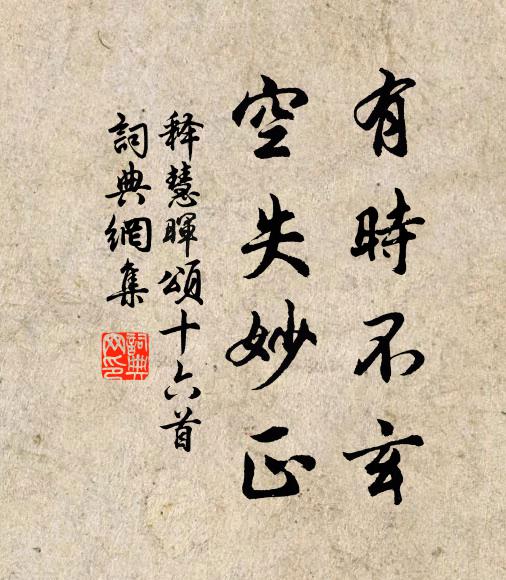 有時不玄
空失妙正
释慧暉頌十六首
詞典網集
詞典網印